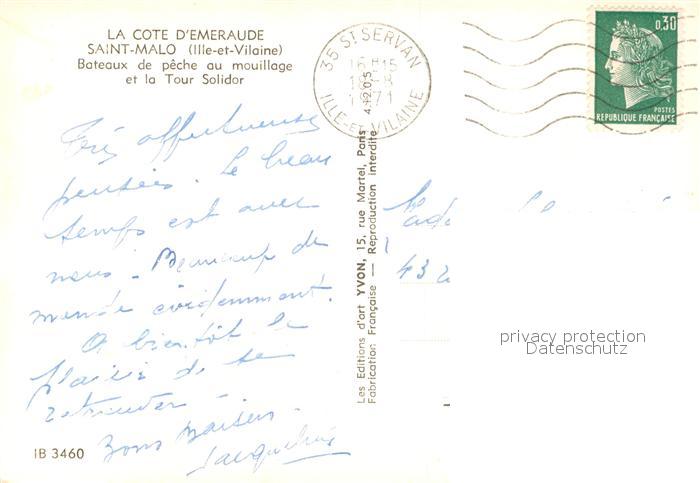 LA COTE D'EMERAUDE
SAINT-MALO (Ille-et-Vilaine)
Bateaux de pêche au mouillage
et la Tour Solidor
35 St SERVAN
1971
ILLE-ET-VILAINE
0,30
POSTES
REPUBLIQUE FRANÇAISE
Très affectueuses
pensées. Le beau
temps est avec
nous. Beaucoup de
monde évidemment.
A bientôt le
plaisir de te
retrouver
Bons baisers.
Jacqueline
Les Editions d'art YVON, 15, rue Martel, Paris
Fabrication Française — Reproduction interdite
432
privacy protection
Datenschutz
IB 3460